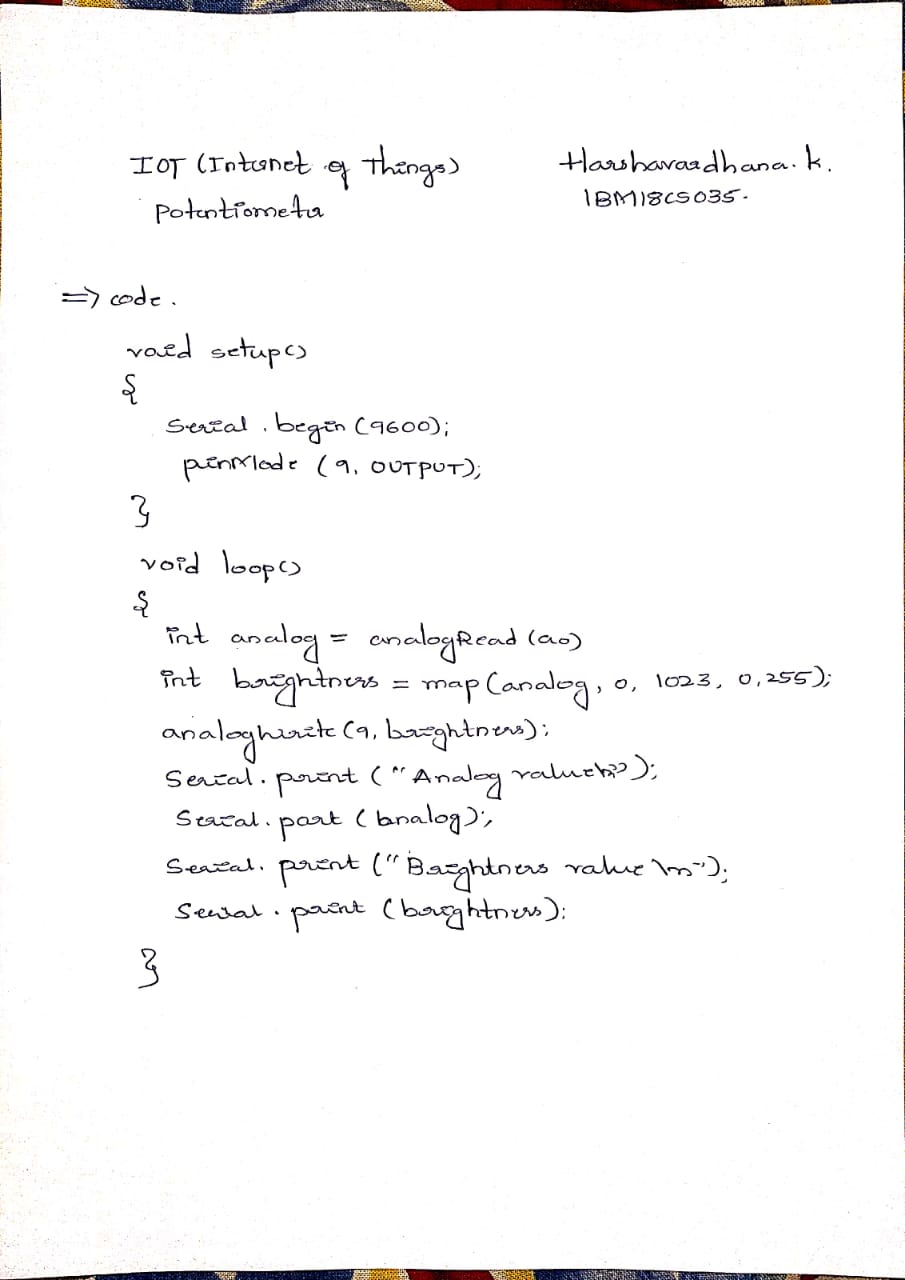 IOT (Internet of Things)
Harshavardhana. K.
1BM18CS035.
Potentiometer
=> code.
void setup()
{
Serial.begin (9600);
pinMode (9, OUTPUT);
}
void loop()
{
int analog = analogRead (a0)
int brightness = map (analog, 0, 1023, 0, 255);
analogwrite (9, brightness);
Serial.print ("Analog value\n");
Serial.print (analog);
Serial.print ("Brightness value \n");
Serial.print (brightness);
}